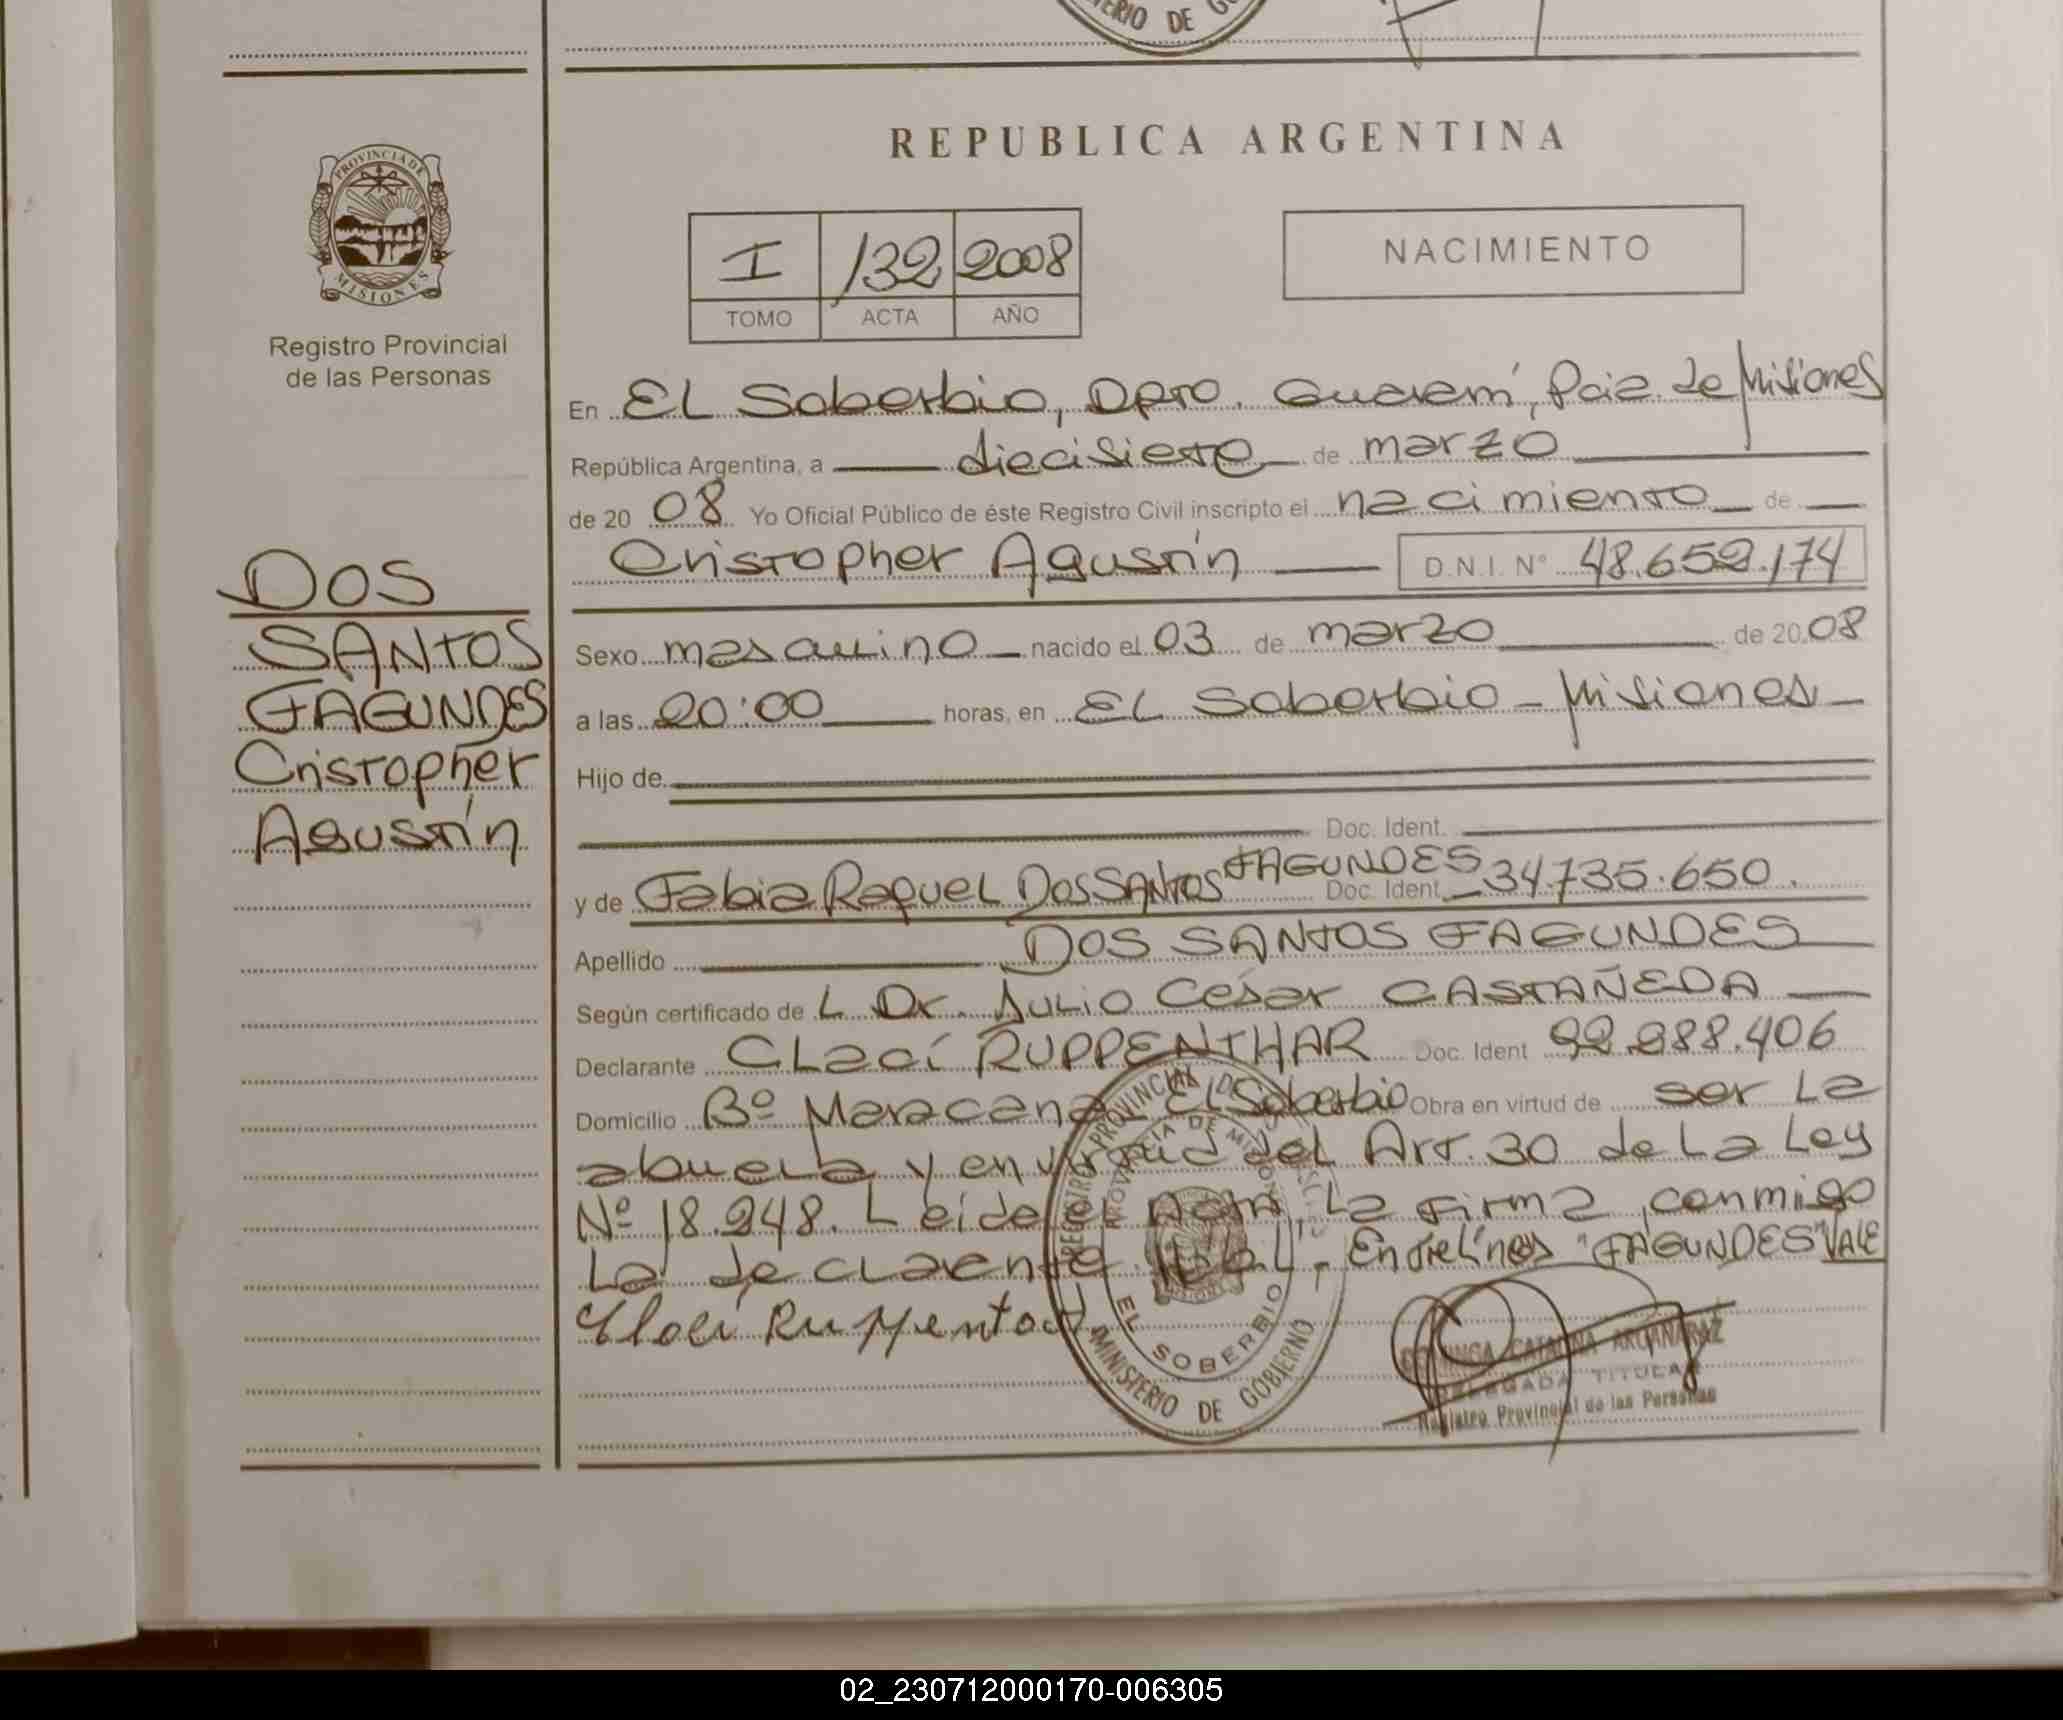 TERIO DE GO
REPUBLICA ARGENTINA
PROVINCIA DE
MISIONES
Registro Provincial
de las Personas
I /32 2008
TOMO ACTA AÑO
NACIMIENTO
En EL Soberbio, Dpto. Guaraní, Pcia. de Misiones
República Argentina, a diecisiete de marzo
de 20 08 Yo Oficial Público de éste Registro Civil inscripto el nacimiento de
Cristopher Agustín D.N.I. N° 48.652.174
DOS
SANTOS
FAGUNDES
Cristopher
Agustín
Sexo masculino nacido el 03 de marzo de 20 08
a las 20:00 horas, en EL Soberbio - Misiones
Hijo de
Doc. Ident.
y de Fabia Raquel Dos SANTOS FAGUNDES Doc. Ident. 34.735.650.
Apellido DOS SANTOS FAGUNDES
Según certificado de L Dr. Julio César CASTAÑEDA
Declarante CLaci RUPPENTHAR Doc. Ident 92.288.406
Domicilio Bº Maracaná El Soberbio Obra en virtud de ser La
abuela y en virtud del Art. 30 de La Ley
Nº 18.248. Leída el Acta, La firma conmigo
La declarante. - Entrelíneas "FAGUNDES" VALE
REGISTRO PROVINCIAL DE
PROVINCIA DE MISIONES
EL SOBERBIO
MINISTERIO DE GOBIERNO
CATALINA
DELEGADA TITULAR
Registro Provincial de las Personas
02_230712000170-006305